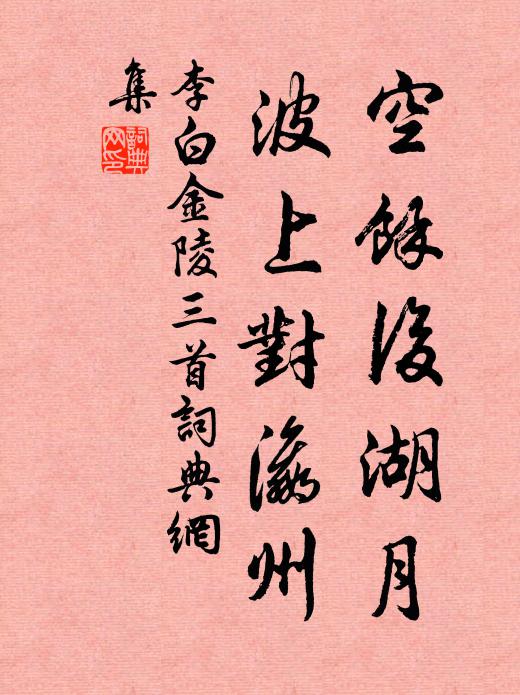 空餘後湖月
波上對瀛州
李白金陵三首詞典網
集
詞典
网印